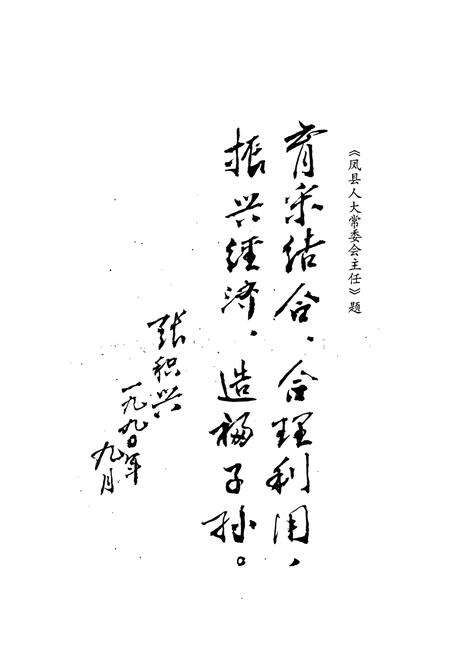 《凤县人大常委会主任》题
育采结合、合理利用、
振兴经济、造福子孙。
张积兴
一九九〇年
九月